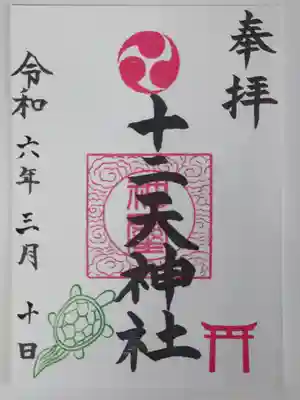 奉拝
十二天神社
令和六年三月十日